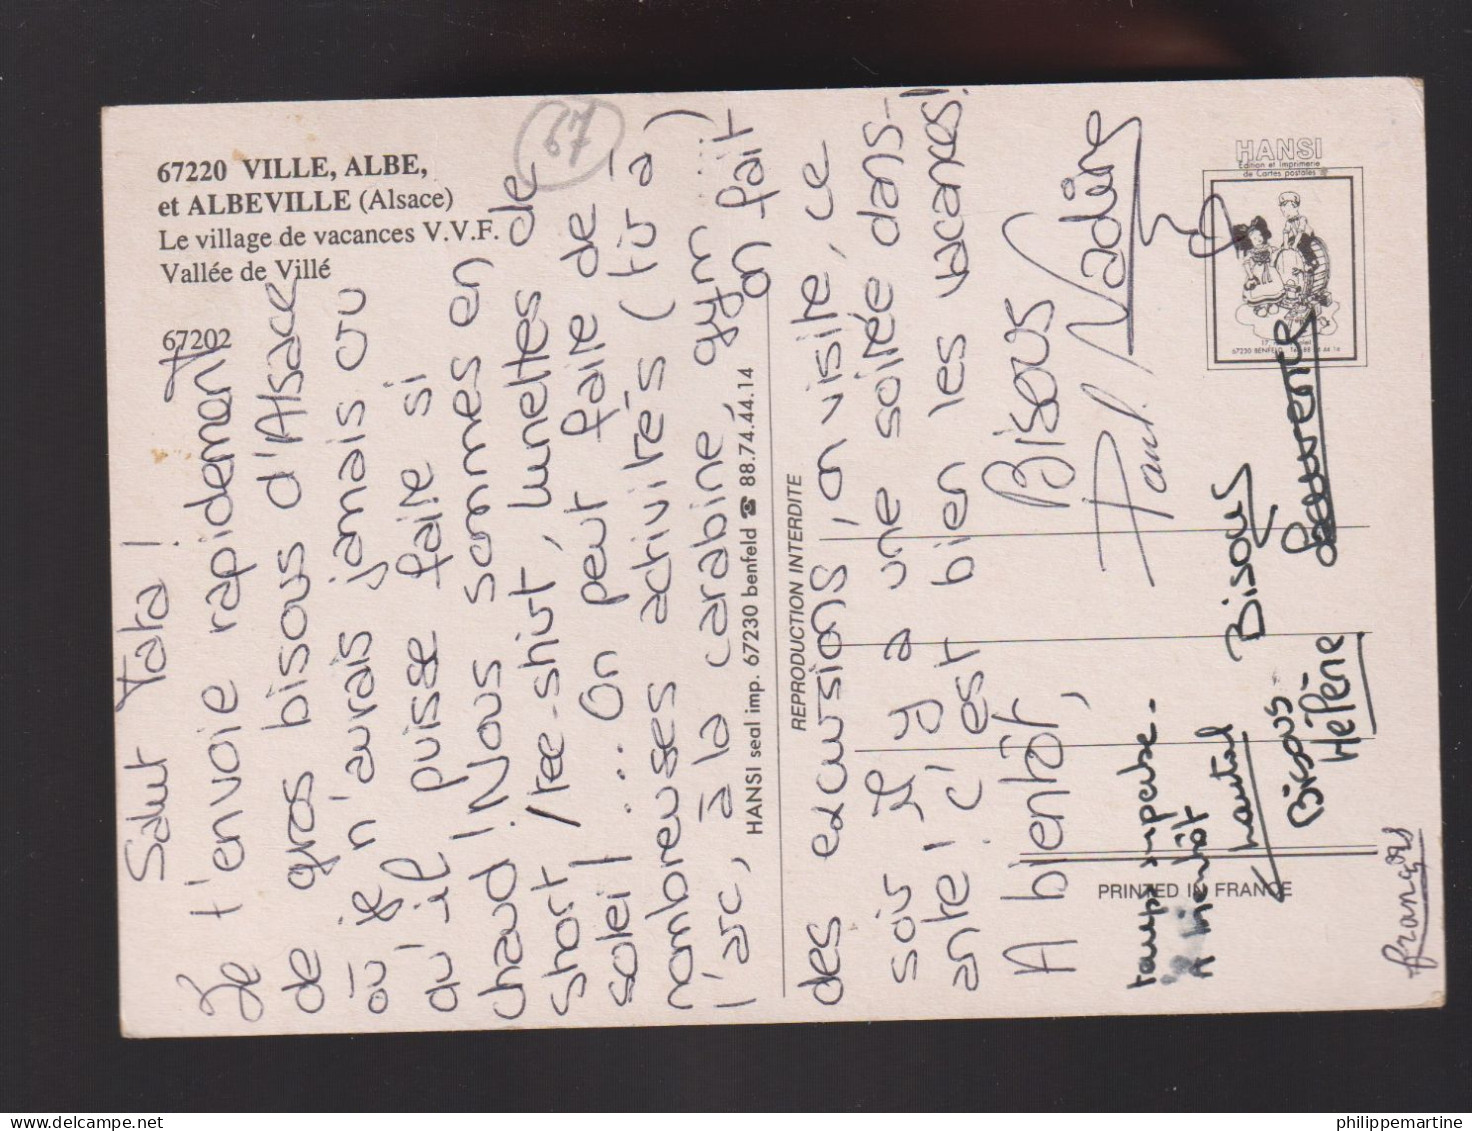 67220 VILLE, ALBE,
et ALBEVILLE (Alsace)
Le village de vacances V.V.F.
Vallée de Villé
67202
67
Salut Tata !
Je t'envoie rapidement
de gros bisous d'Alsace
où je n'aurais jamais cru
qu'il puisse faire si
chaud ! Nous sommes en
short / tee-shirt, lunettes de
soleil ... On peut faire de
nombreuses activités (tir à
l'arc, à la carabine, gym ...)
on fait
des excursions, on visite, ce
soir il y a une soirée dans-
ante ! c'est bien les vacances !
A bientôt, Bisous
Paul. Nadine
temps superbe.
A bientôt
Chantal
Bisous
Laurence
Bisous
Hélène
françois
HANSI seal imp. 67230 benfeld ☎ 88.74.44.14
REPRODUCTION INTERDITE
HANSI
Edition et Imprimerie
de Cartes postales
67230 BENFELD
PRINTED IN FRANCE
philippemartine